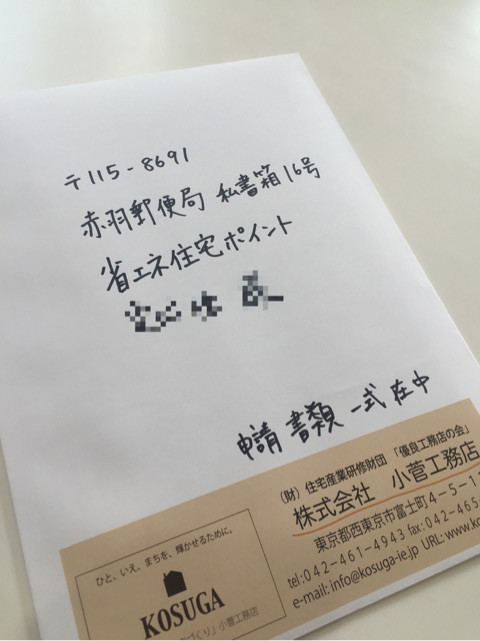 〒115-8691
赤羽郵便局 私書箱16号
省エネ住宅ポイント
申請書類一式在中
(財)住宅産業研修財団「優良工務店の会」
株式会社 小菅工務店
東京都西東京市富士町4-5-1
tel:042-461-4943 fax:042-465
e-mail:info@kosuga-ie.jp URL:www.ko
ひと、いえ、まちを、輝かせるために。
KOSUGA
づくり」小菅工務店